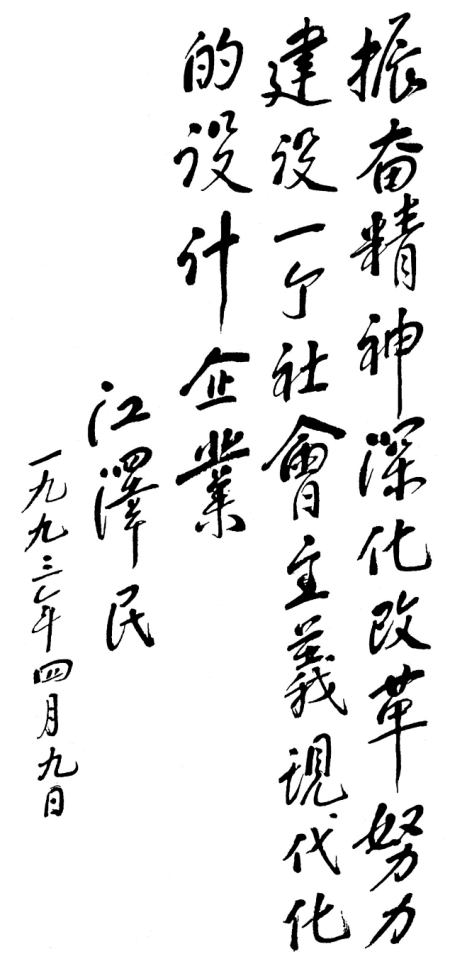 振奋精神深化改革努力
建设一个社會主義現代化
的设计企業
江澤民
一九九三年四月九日